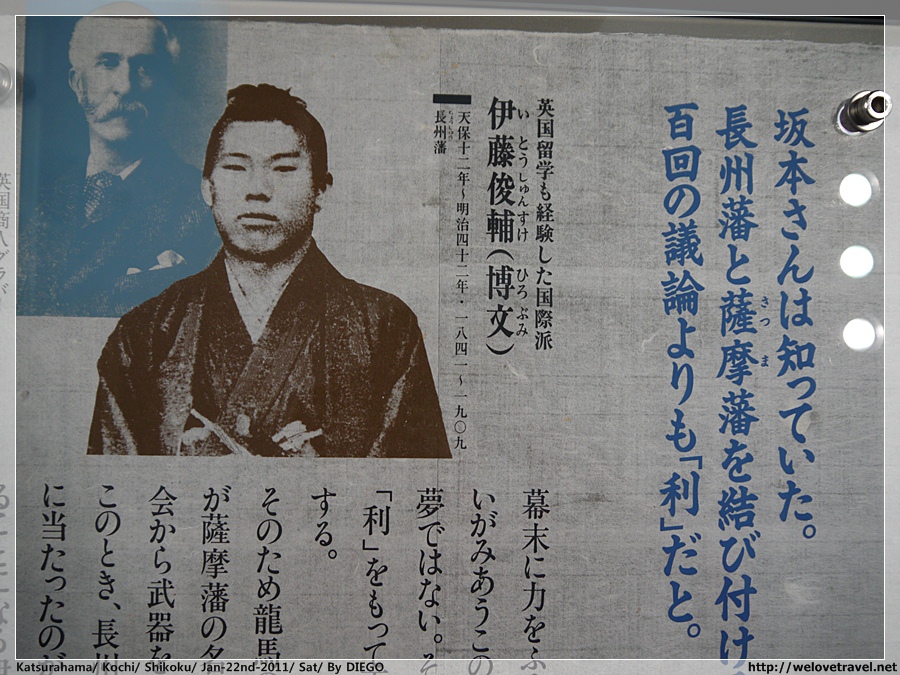 坂本さんは知っていた。
長州藩と薩摩藩を結び付け
さつま
百回の議論よりも「利」だと。
英国留学も経験した国際派
伊藤俊輔(博文)
いとうしゅんすけ ひろぶみ
天保十二年〜明治四十二年・一八四一〜一九〇九
長州藩
ちょうしゅう
幕末に力をふ
いがみあうこの
夢ではない。そ
「利」をもって
する。
そのため龍馬
が薩摩藩の名
会から武器を
このとき、長州
に当たったのが
英国商人グラバ
Katsurahama/ Kochi/ Shikoku/ Jan-22nd-2011/ Sat/ By DIEGO
http://welovetravel.net